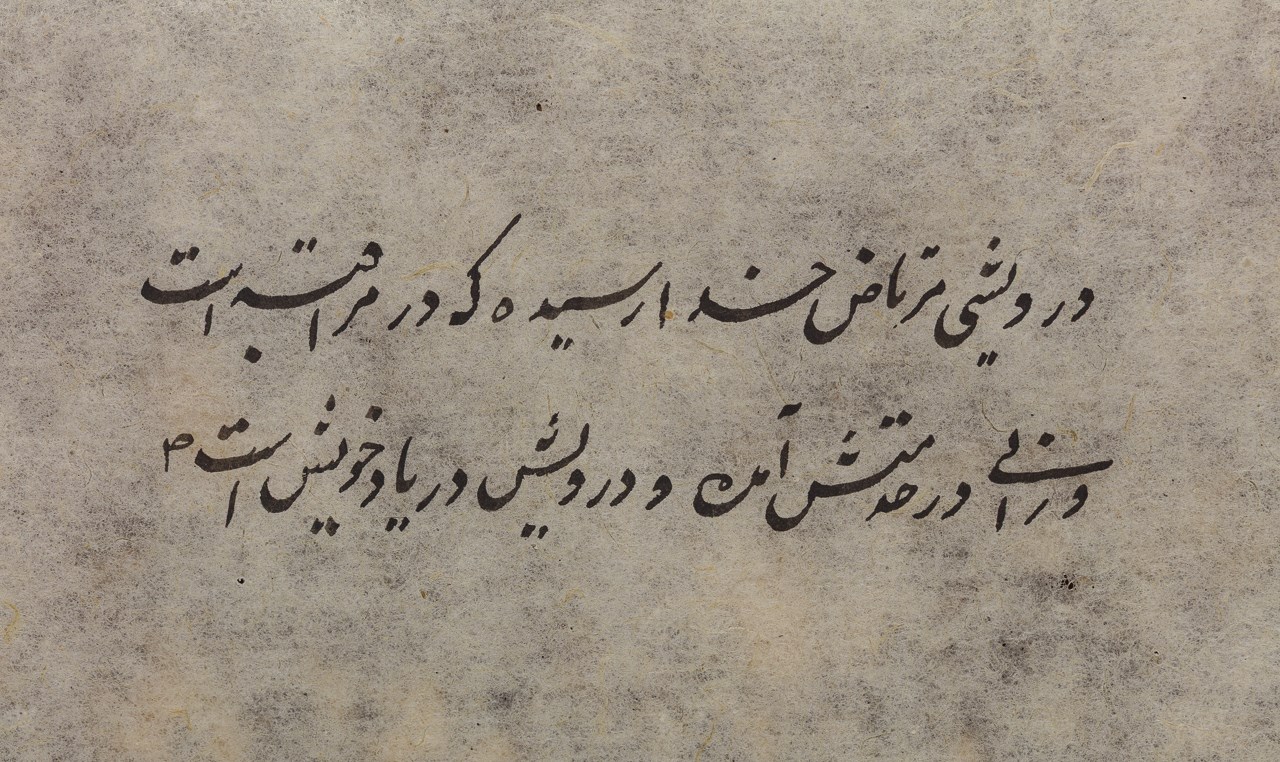 درویشی مرتاض خدا رسیده که در مراقبه است
وزائی در خدمتش آمده و درویش در یاد خویش است م